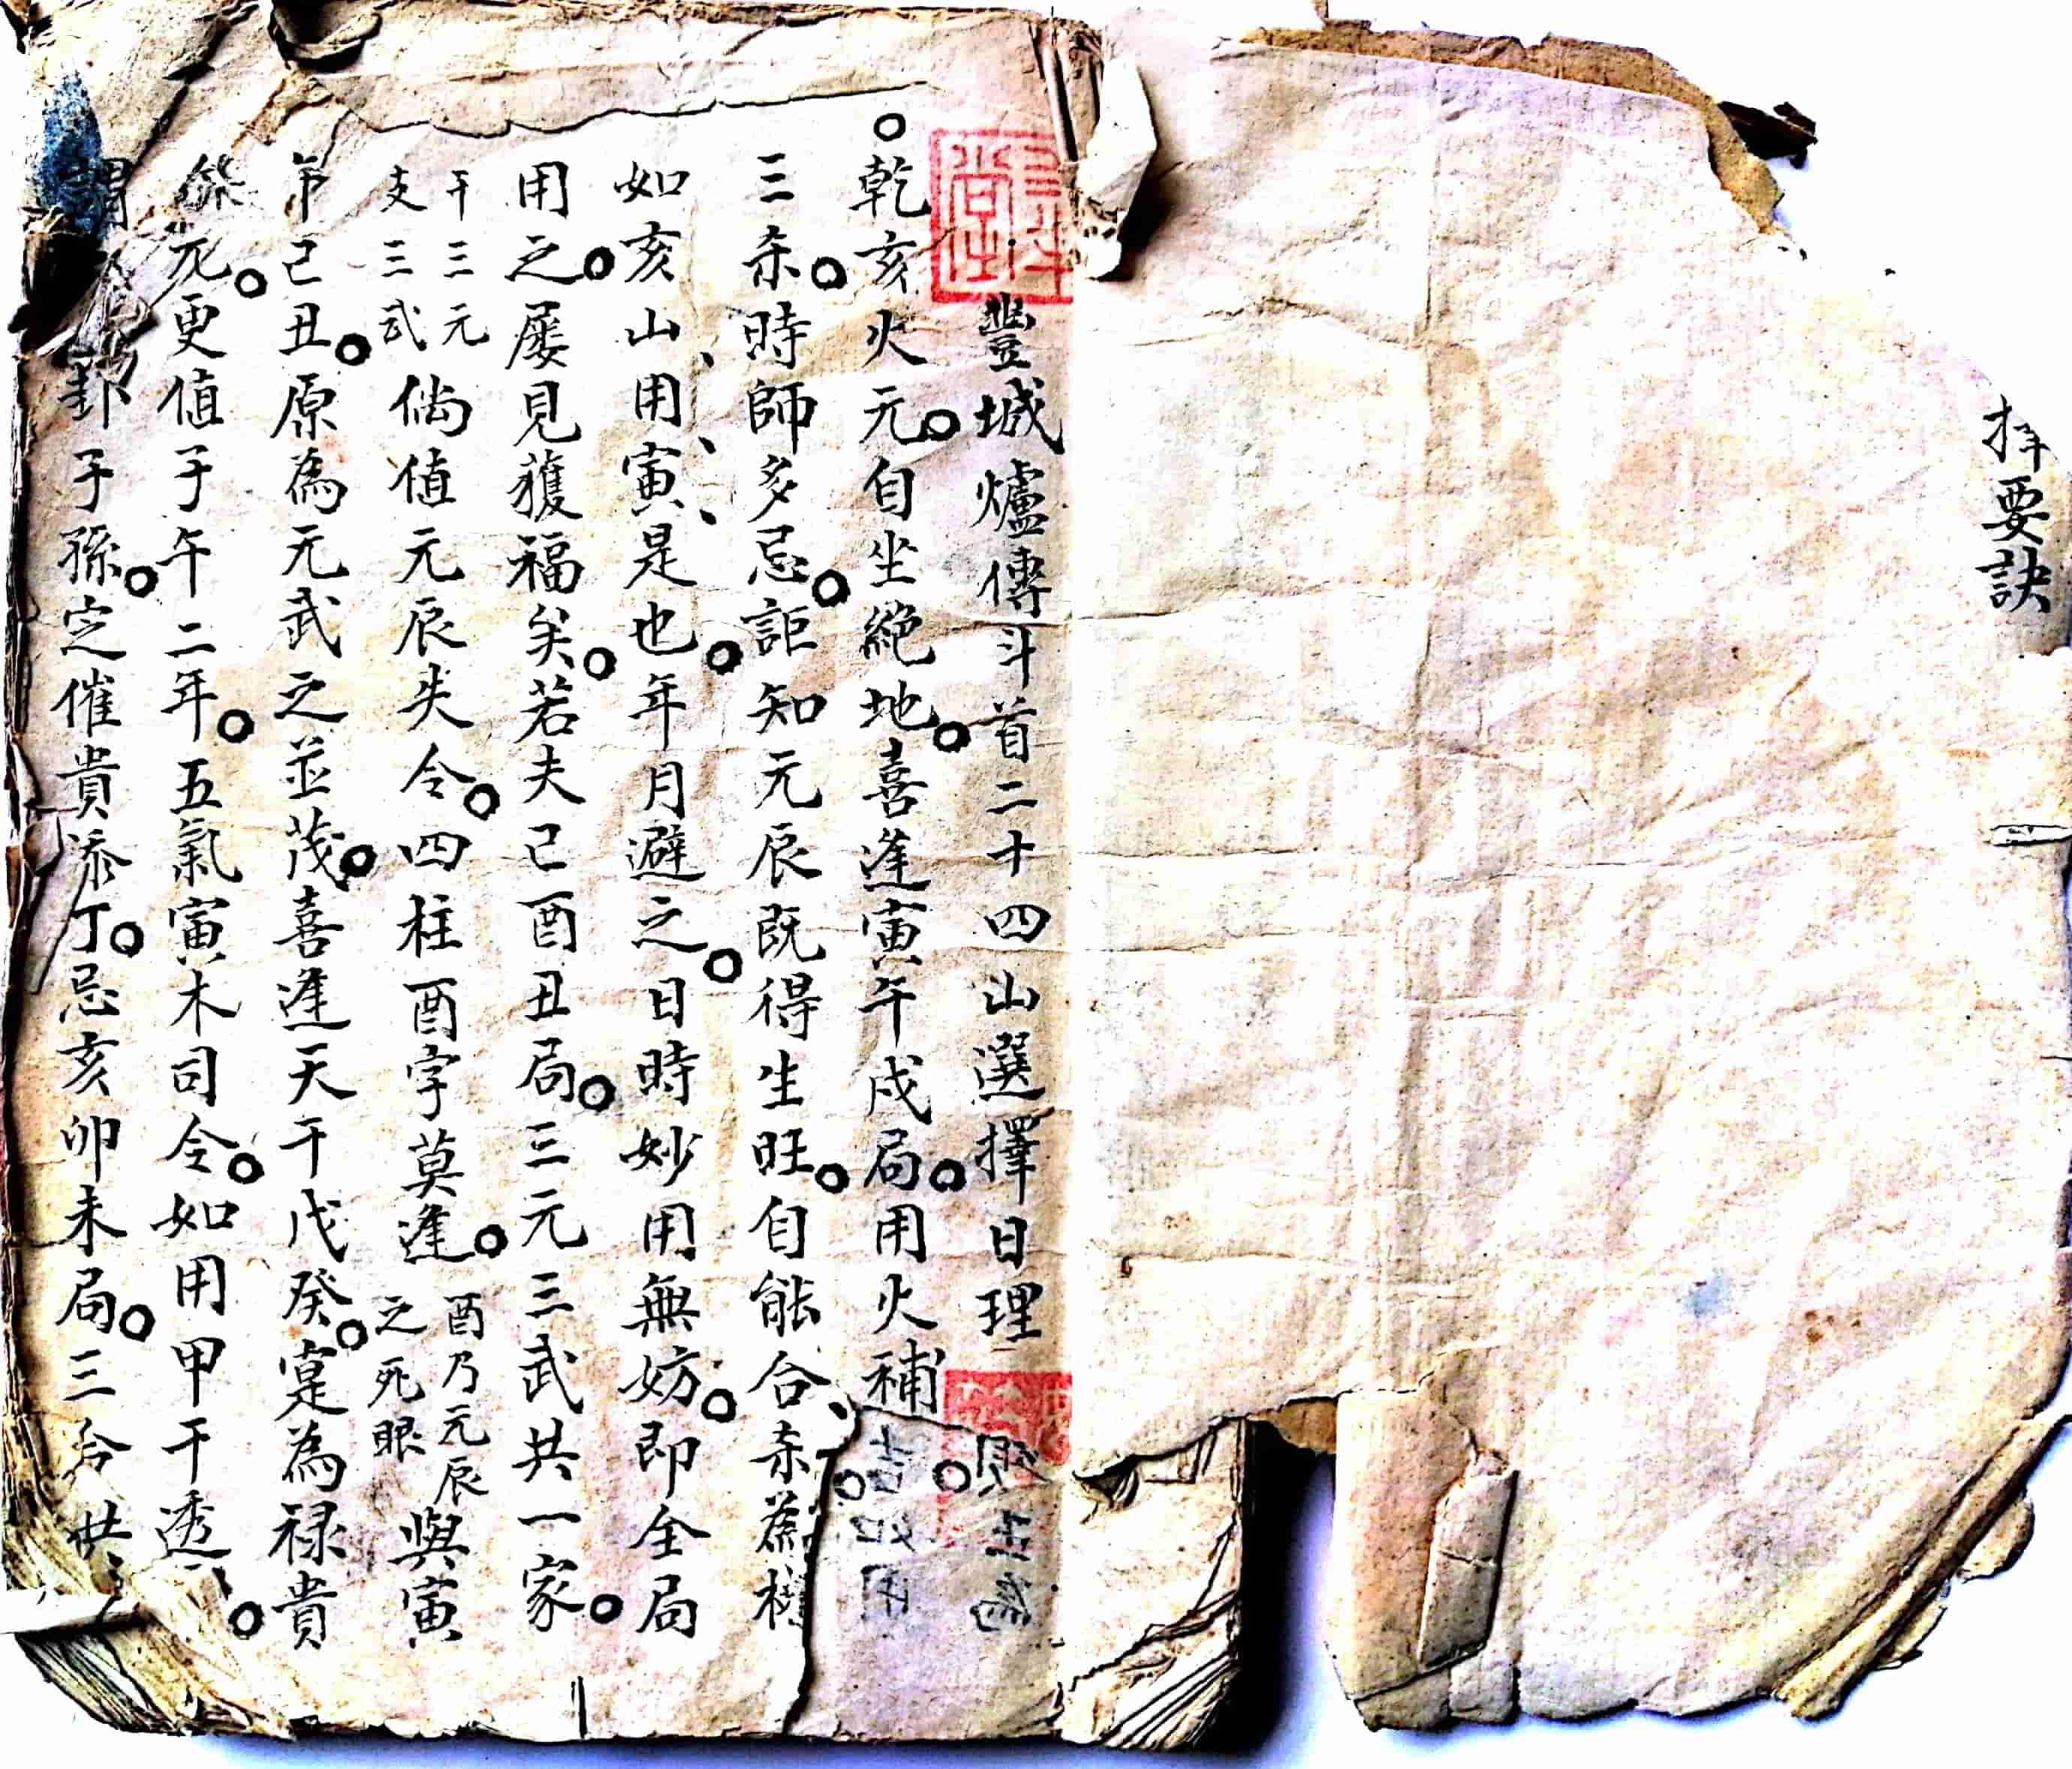 擇要訣
豐城爐傳斗首二十四山選擇日理
○乾亥火元。自坐絕地。喜逢寅午戌局。用火補
三杀。時師多忌。詎知元辰既得生旺。自能合、杀為權
如亥山用寅是也。年月避之。日時妙用無妨。即全局
用之。屡見獲福矣。若夫己酉丑局。三元三武共一家。
干三元
支三武
倘值元辰失令。四柱酉字莫逢。
酉乃元辰
之死眼
與寅
午己丑。原為元武之並茂。喜逢天干戊癸。寔為禄貴
元。更值子午二年。五氣寅木司令。如用甲干透。
謂 卦子孫。定催貴添丁。忌亥卯未局。三合